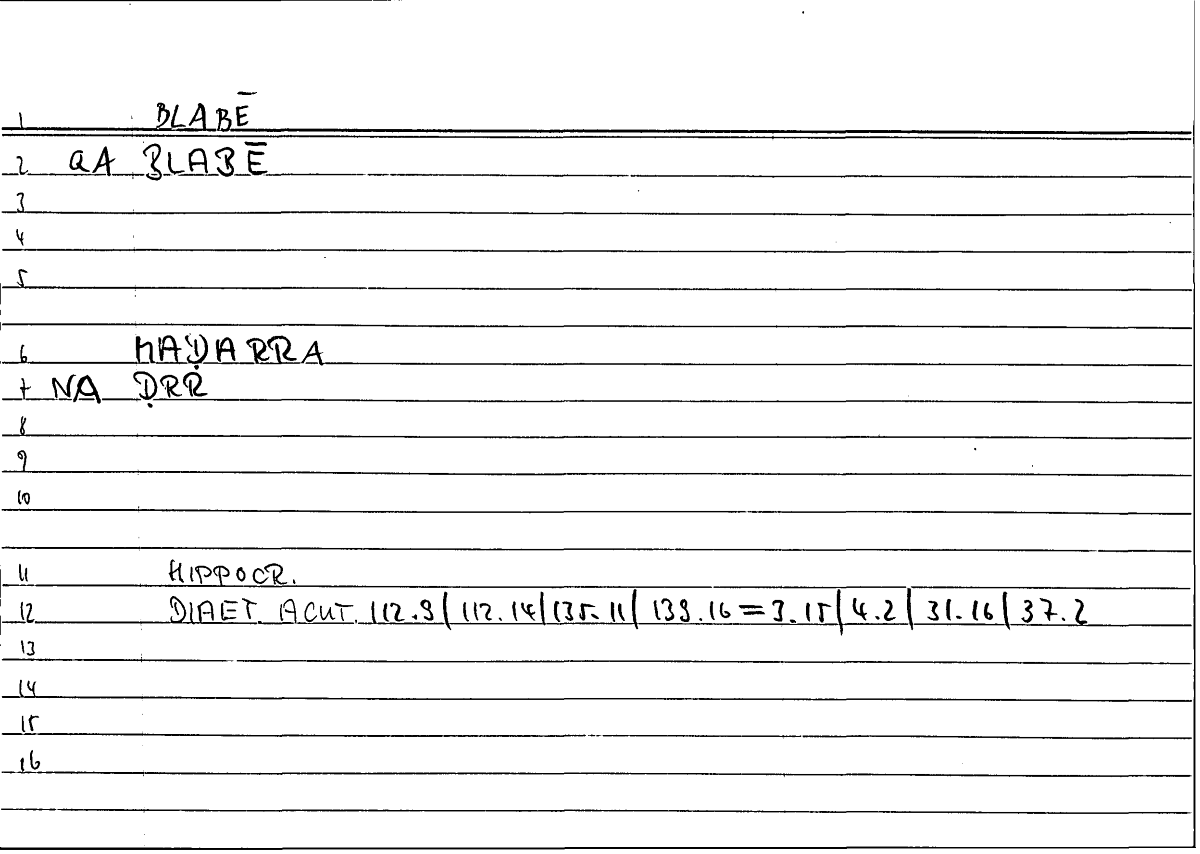 1 BLABĒ
2 QA BLABĒ
3
4
5
6 MAḌARRA
7 NA ḌRR
8
9
10
11 HIPPOCR.
12 DIAET. ACUT. 112.9 | 112.14 | 135.11 | 139.16 = 3.15 | 4.2 | 31.16 | 37.2
13
14
15
16